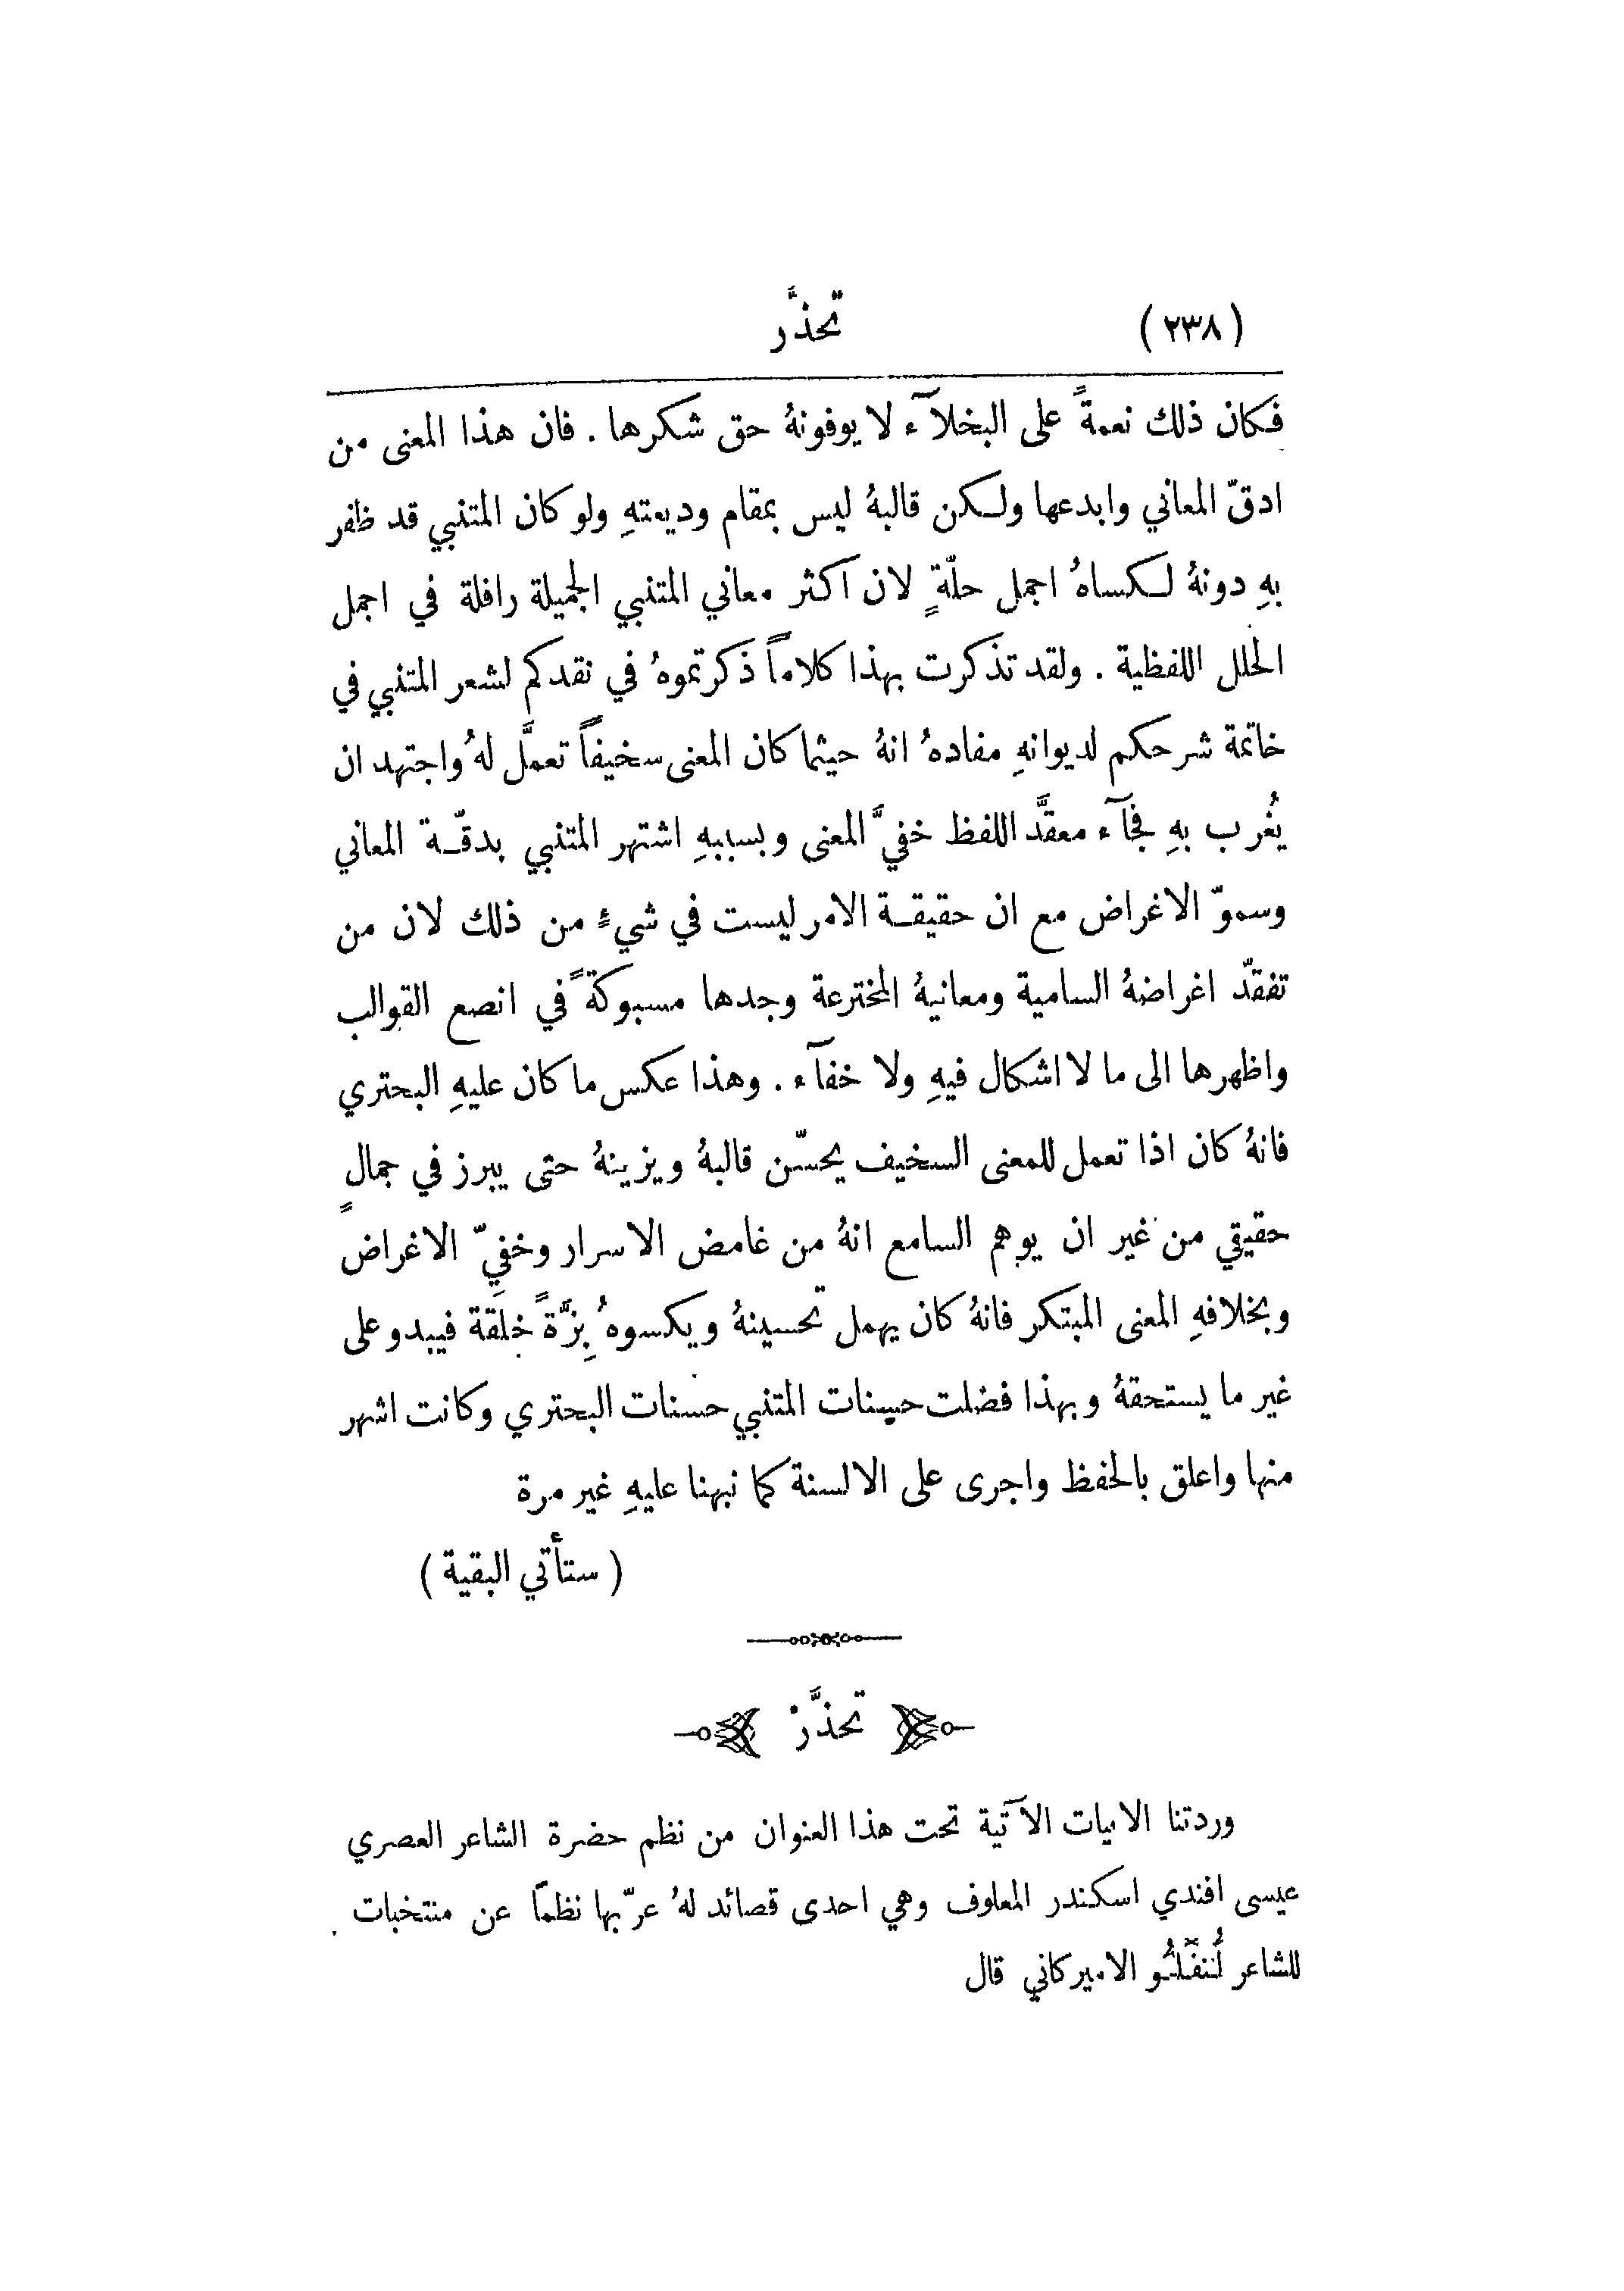 (٢٣٨) تحذَّر
فكان ذلك نعمةً على البخلآء لا يوفونهُ حق شكرها . فان هذا المعنى من
ادقّ المعاني وابدعها ولكن قالبهُ ليس بمقام وديعتهِ ولو كان المتنبي قد ظفر
بهِ دونهُ لكساهُ اجمل حلّةٍ لان اكثر معاني المتنبي الجميلة رافلة في اجمل
الحلل اللفظية . ولقد تذكرت بهذا كلاماً ذكرتموهُ في نقدكم لشعر المتنبي في
خاتمة شرحكم لديوانهِ مفادهُ انهُ حيثما كان المعنى سخيفاً تعمَّل لهُ واجتهد ان
يُغرب بهِ فجآء معقَّد اللفظ خفيَّ المعنى وبسببهِ اشتهر المتنبي بدقّة المعاني
وسموّ الاغراض مع ان حقيقة الامر ليست في شيءٍ من ذلك لان من
تفقدّ اغراضهُ السامية ومعانيهُ المخترعة وجدها مسبوكةً في انصع القوالب
واظهرها الى ما لا اشكال فيهِ ولا خفآء . وهذا عكس ما كان عليهِ البحتري
فانهُ كان اذا تعمل للمعنى السخيف يحسّن قالبهُ ويزينهُ حتى يبرز في جمالٍ
حقيقي من غير ان يوهم السامع انهُ من غامض الاسرار وخفيِّ الاغراض
وبخلافهِ المعنى المبتكر فانهُ كان يهمل تحسينهُ ويكسوهُ بِزَّةً خلقة فيبدو على
غير ما يستحقهُ وبهذا فضلت حسنات المتنبي حسنات البحتري وكانت اشهر
منها واعلق بالحفظ واجرى على الالسنة كما نبهنا عليهِ غير مرة
( ستأتي البقية )
تحذَّرْ
وردتنا الابيات الآتية تحت هذا العنوان من نظم حضرة الشاعر العصري
عيسى افندي اسكندر المعلوف وهي احدى قصائد لهُ عرّبها نظماً عن منتخبات
للشاعر لُنفَلُو الاميركاني قال